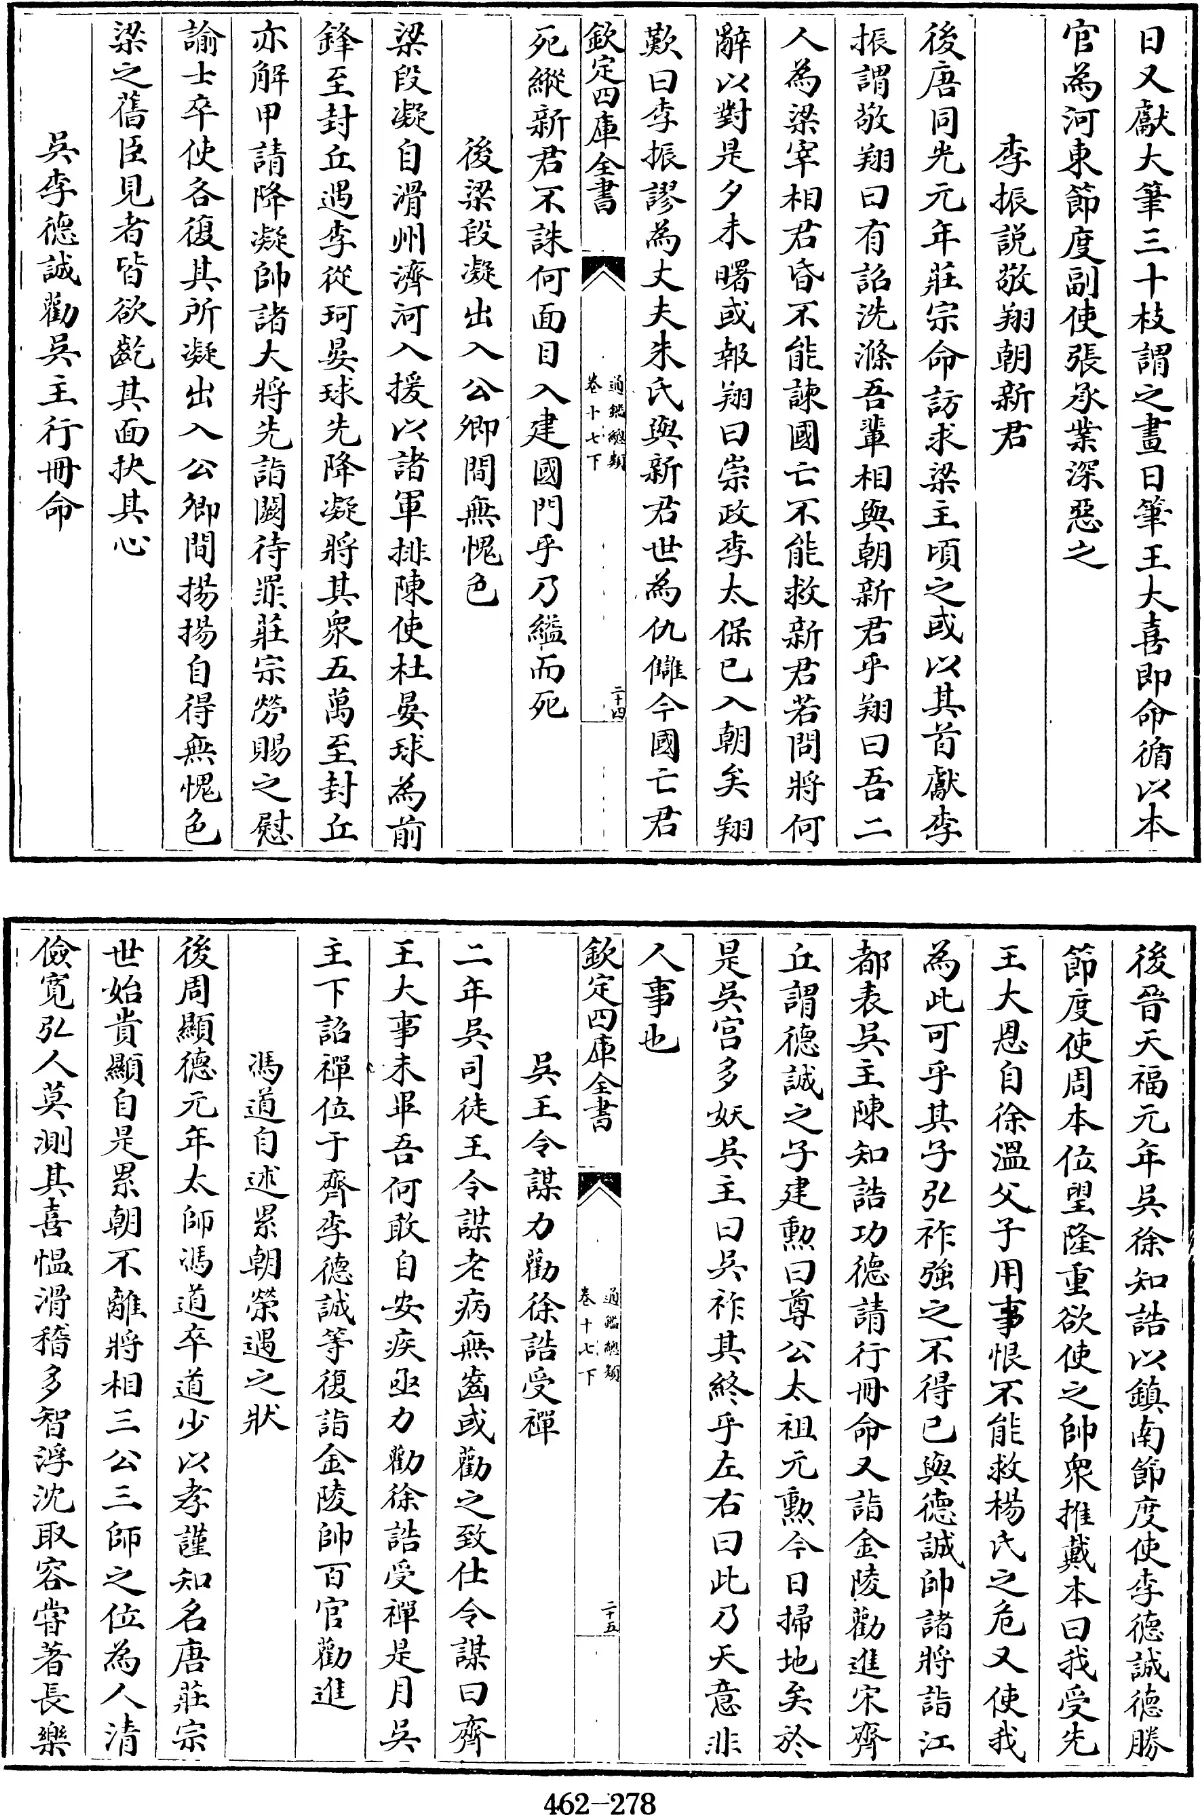 日又獻大筆三十枝謂之畫日筆王大喜即命循以本
官為河東節度副使張承業深惡之
李振説敬翔朝新君
後唐同光元年莊宗命訪求梁主頃之或以其首獻李
振謂敬翔曰有詔洗滌吾輩相與朝新君乎翔曰吾二
人為梁宰相君昏不能諫國亡不能救新君若問將何
辭以對是夕未曙或報翔曰崇政李太保已入朝矣翔
歎曰李振謬為丈夫朱氏與新君世為仇讎今國亡君
欽定四庫全書
通鑑總類
卷十七下
二十四
死縱新君不誅何面目入建國門乎乃縊而死
後梁段凝出入公卿間無愧色
梁段凝自滑州濟河入援以諸軍排陳使杜晏球為前
鋒至封丘遇李從珂晏球先降凝將其衆五萬至封丘
亦解甲請降凝帥諸大將先詣闕待罪莊宗勞賜之慰
諭士卒使各復其所凝出入公卿間揚揚自得無愧色
梁之舊臣見者皆欲齕其面抉其心
吳李德誠勸吳主行冊命
後晉天福元年吳徐知誥以鎮南節度使李德誠德勝
節度使周本位望隆重欲使之帥衆推戴本曰我受先
王大恩自徐溫父子用事恨不能救楊氏之危又使我
為此可乎其子弘祚強之不得已與德誠帥諸將詣江
都表吳主陳知誥功德請行冊命又詣金陵勸進宋齊
丘謂德誠之子建勲曰尊公太祖元勲今日掃地矣於
是吳宮多妖吳主曰吳祚其終乎左右曰此乃天意非
人事也
欽定四庫全書
通鑑總類
卷十七下
二十五
吳王令謀力勸徐誥受禪
二年吳司徒王令謀老病無齒或勸之致仕令謀曰齊
王大事未畢吾何敢自安疾亟力勸徐誥受禪是月吳
主下詔禪位于齊李德誠等復詣金陵帥百官勸進
馮道自述累朝榮遇之狀
後周顯德元年太師馮道卒道少以孝謹知名唐莊宗
世始貴顯自是累朝不離將相三公三師之位為人清
儉寛弘人莫測其喜愠滑稽多智浮沈取容甞著長樂
462-278